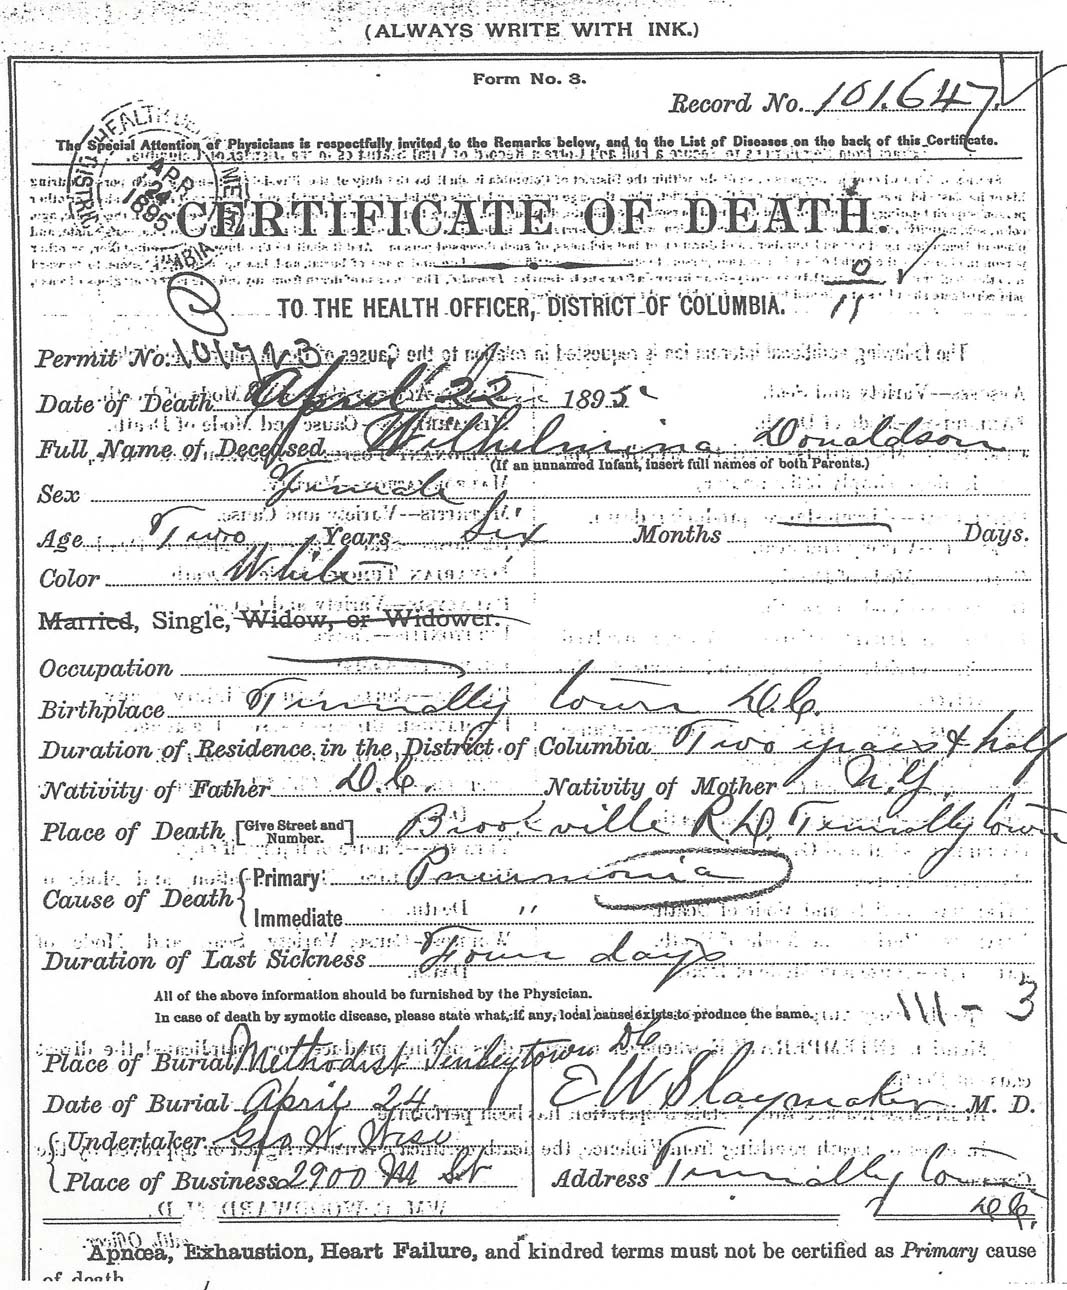 (ALWAYS WRITE WITH INK.)
Form No. 3.
Record No. 101.647
The Special Attention of Physicians is respectfully invited to the Remarks below, and to the List of Diseases on the back of this Certificate.
APR
24
1895
CERTIFICATE OF DEATH.
0
11
TO THE HEALTH OFFICER, DISTRICT OF COLUMBIA.
Permit No.
Date of Death April 22 1895
Full Name of Deceased Wilhelmina Donaldson
(If an unnamed Infant, insert full names of both Parents.)
Sex Female
Age Two Years Six Months — Days.
Color White
Married, Single, Widow, or Widower.
Occupation —
Birthplace Tennally town D.C.
Duration of Residence in the District of Columbia Two years & half
Nativity of Father D.C. Nativity of Mother N.Y.
Place of Death [Give Street and Number.] Brookville Rd. Tennallytown
Cause of Death { Primary: Pneumonia
Immediate "
Duration of Last Sickness Four days
All of the above information should be furnished by the Physician.
In case of death by zymotic disease, please state what, if any, local cause exists to produce the same.
111 - 3
Place of Burial Methodist Tenleytown DC
Date of Burial April 24
E W Slaymaker M. D.
Undertaker Geo W. Wise
Place of Business 2900 M St
Address Tennally town
D.C.
Apnœa, Exhaustion, Heart Failure, and kindred terms must not be certified as Primary cause
of death